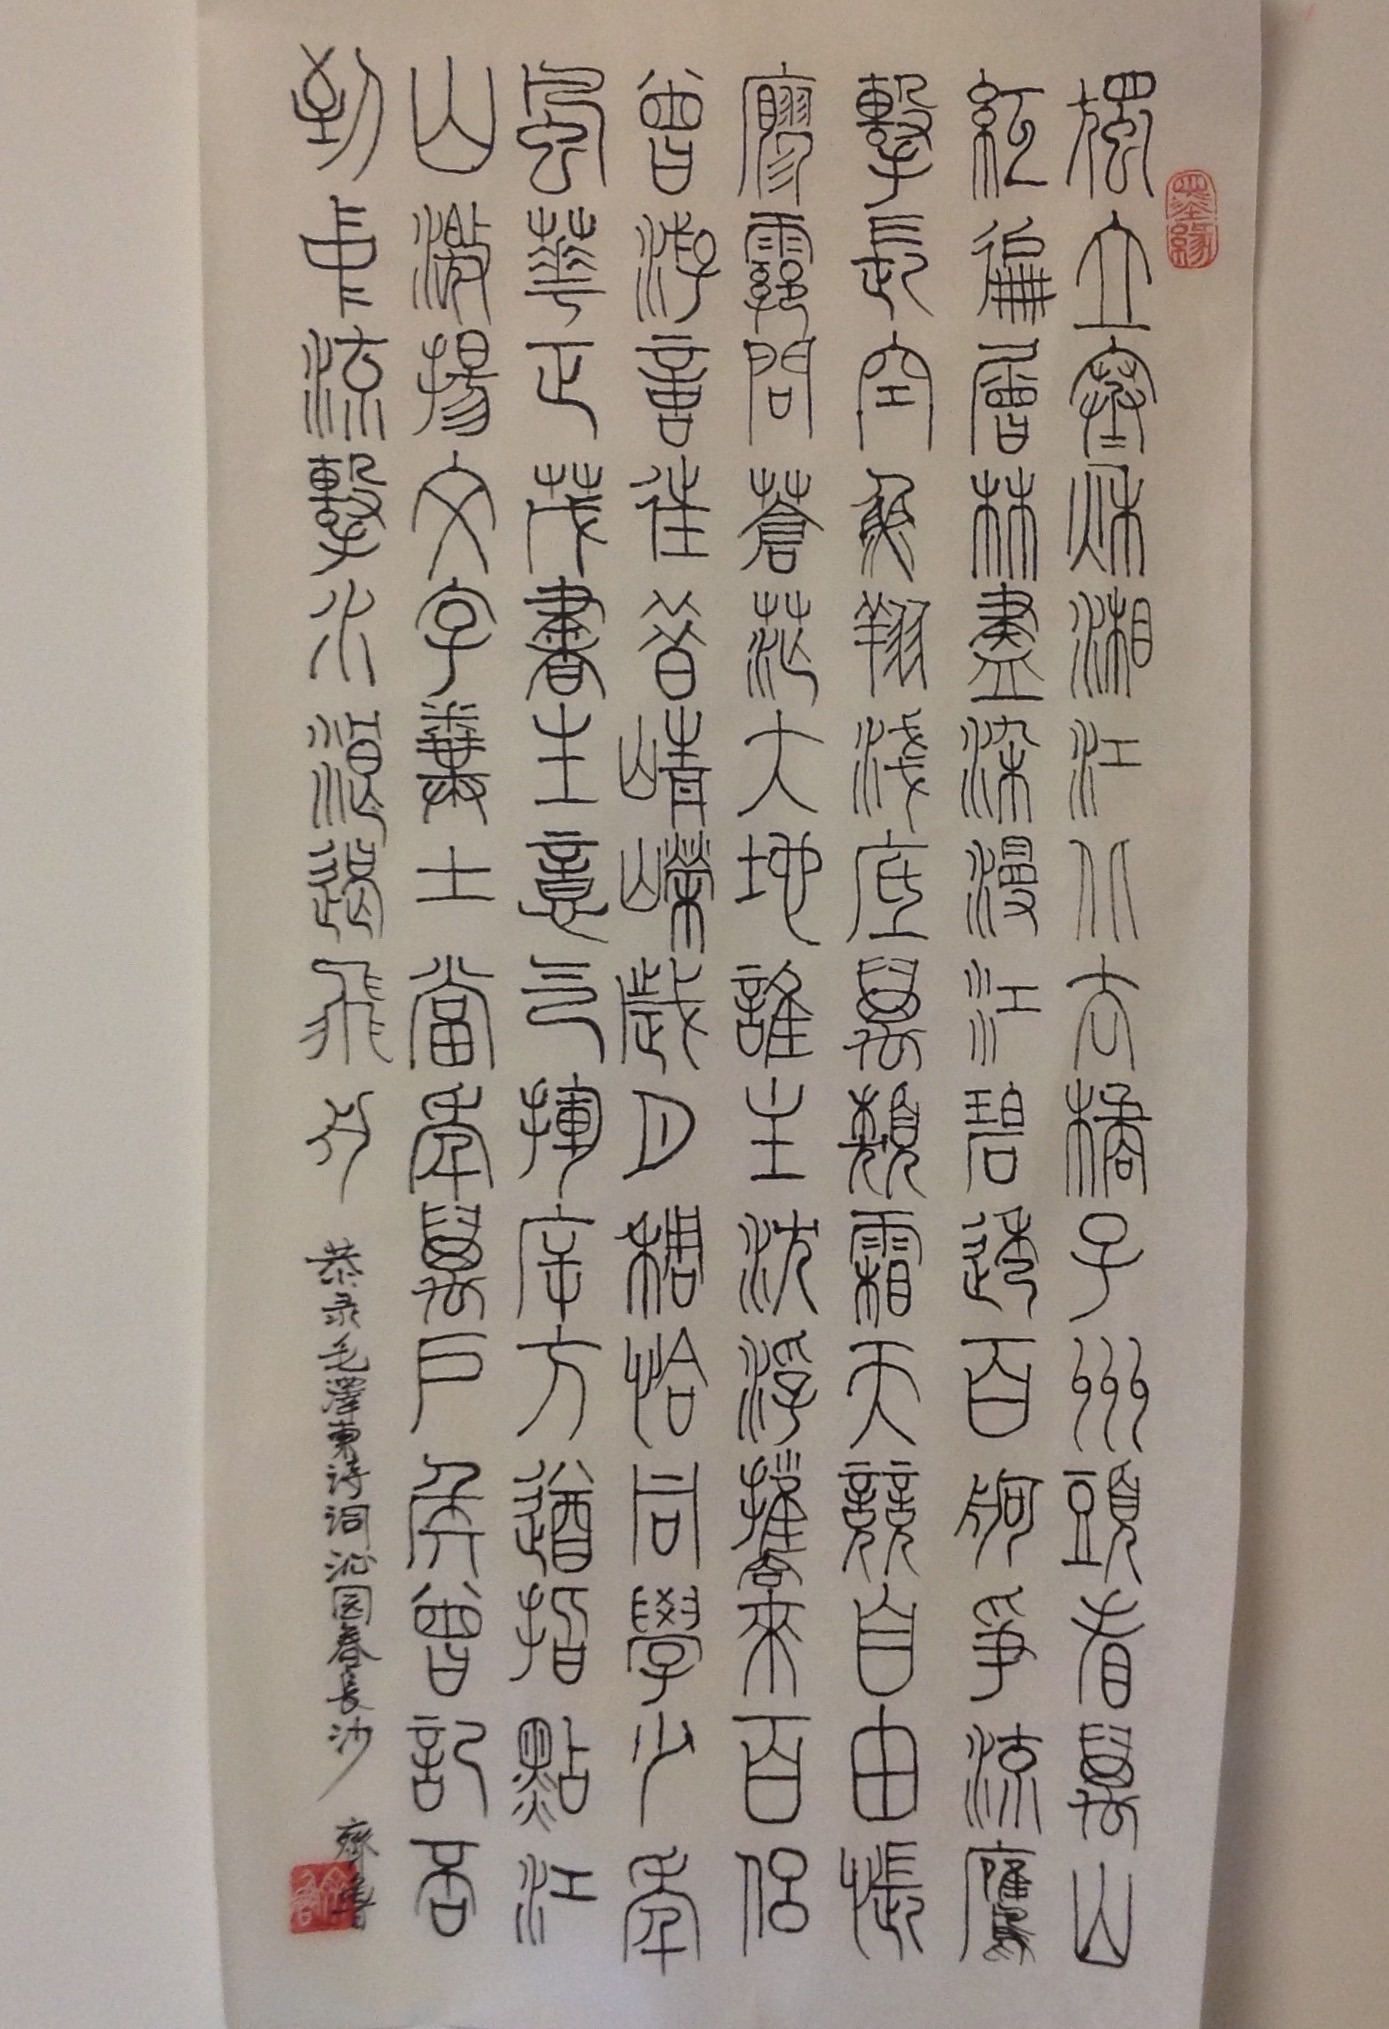 墨緣
獨立寒秌湘江北去橘子州頭看萬山
紅徧層林盡染漫江碧透百舸爭流鷹
擊長空魚翔淺底萬類霜天競自由悵
廖霩問蒼茫大地誰主沈浮攜來百侶
曾游憶往昔崝嶸歲月稠恰同學少年
風華正茂書生意气揮斥方遒指點江
山激揚文字糞土當年萬戶矦曾記否
到中流擊水浪遏飛舟
恭录毛澤東诗词沁园春長沙
齊書